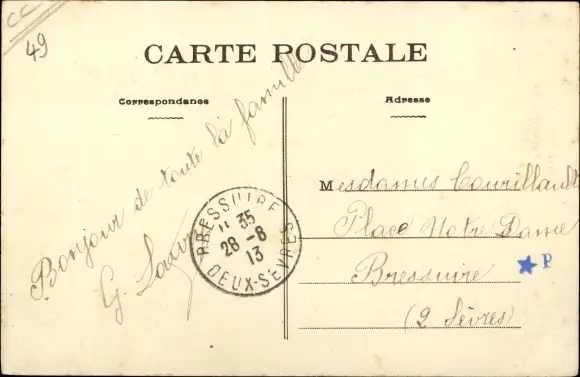 CC
49
CARTE POSTALE
Correspondance
Adresse
Bonjour de toute la famille
G.
BRESSUIRE
11 35
28-8
13
DEUX-SÈVRES
Mesdames Courillault
Place Notre Dame
Bressuire
(2 Sèvres)
P